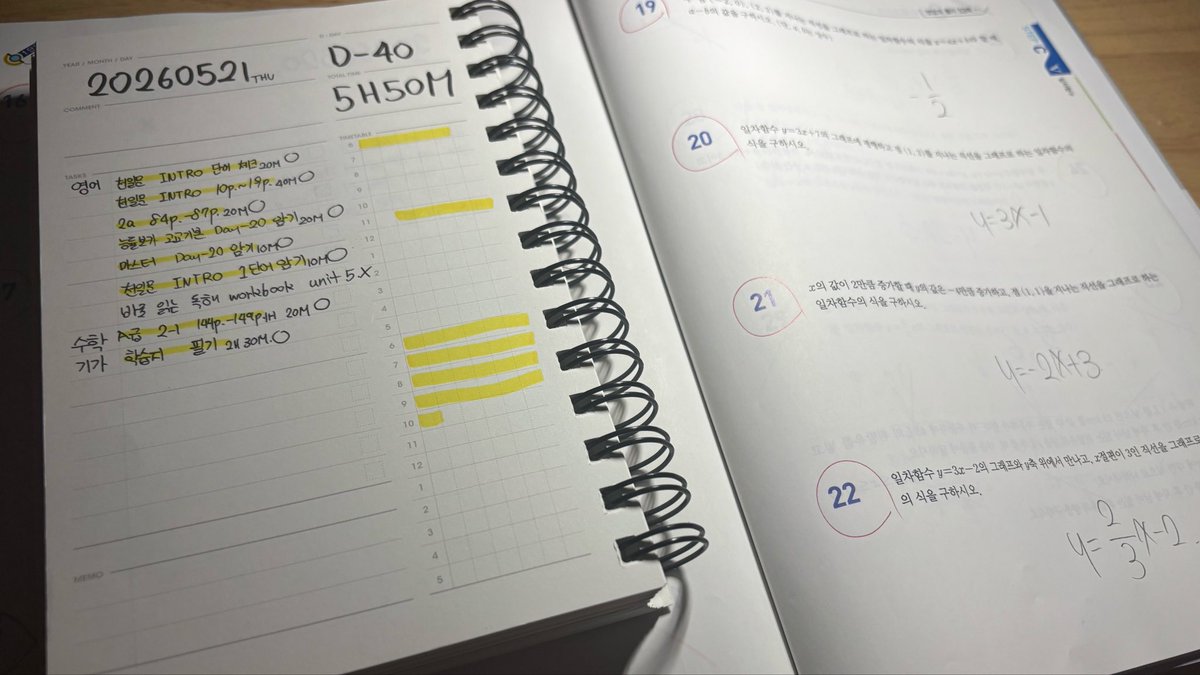 YEAR / MONTH / DAY
20260521 THU
D-DAY
D-40
TOTAL TIME
5H50M
COMMENT
TASKS
영어 천일문 INTRO 단어 체크 20M ○
천일문 INTRO 10p.~19p. 40M ○
2a 84p.-87p. 20M ○
능률보카 고교기본 Day-20 암기 20M ○
마스터 Day-20 암기 10M ○
천일문 INTRO 1단어 암기 10M ○
바로 읽는 독해 workbook unit 5. X
수학 A급 2-1 144p.-149p. 1H 20M ○
기가 학습지 필기 2H 30M. ○
TIMETABLE
6
7
8
9
10
11
12
1
2
3
4
5
6
7
8
9
10
11
12
1
2
3
4
5
MEMO
16
7
19
- 1/2
20
일차함수 y=3x+7의 그래프에 평행하고 점 (1, 2)를 지나는 직선을 그래프로 하는 일차함수의
식을 구하시오.
y=3x-1
21
x의 값이 2만큼 증가할 때 y의 값은 -4만큼 증가하고, 점 (1, 1)을 지나는 직선을 그래프로 하는
일차함수의 식을 구하시오.
y=-2x+3
22
일차함수 y=3x-2의 그래프와 y축 위에서 만나고, x절편이 3인 직선을 그래프로
의 식을 구하시오.
y=2/3x-2